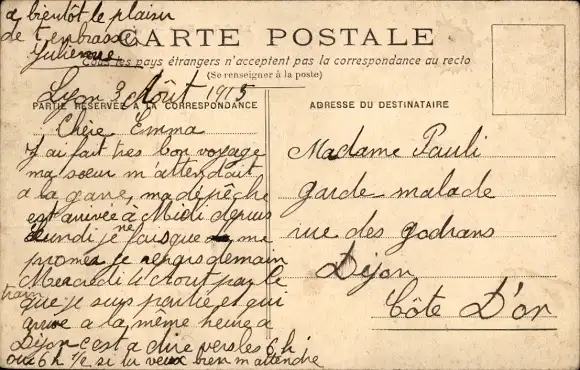 a bientôt le plaisir
de t embrasser
Julienne
CARTE POSTALE
Tous les pays étrangers n'acceptent pas la correspondance au recto
(Se renseigner à la poste)
Lyon 3 Août 1915
PARTIE RÉSERVÉE A LA CORRESPONDANCE
Chère Emma
J ai fait tres bon voyage
ma sœur m attendait
a la gare, ma dépêche
est arrivée à Midi depuis
Lundi je ne fais que me
promer je repars demain
Mercredi 4 Aout par le
train que je suis partie et qui
arrive a la même heure a
Dijon c est a dire vers les 6 h
ou 6 h 1/2 si tu veux bien m attendre
ADRESSE DU DESTINATAIRE
Madame Pauli
garde-malade
rue des godrans
Dijon
Côte D'or